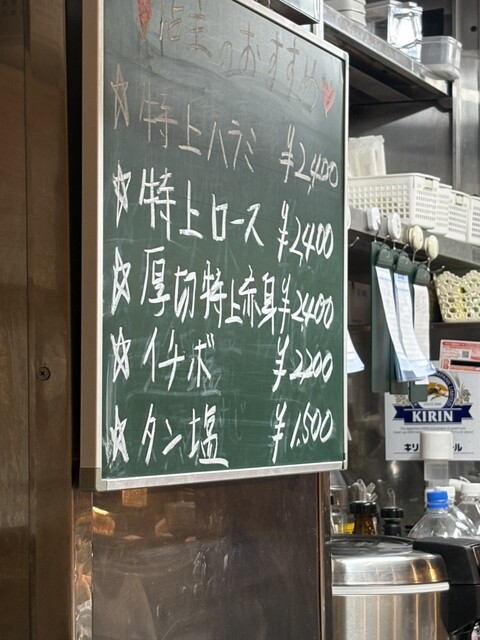 店主のおすすめ
☆特上ハラミ ¥2,400
☆特上ロース ¥2400
☆厚切特上赤身 ¥2,400
☆イチボ ¥2200
☆タン塩 ¥1,500
KIRIN